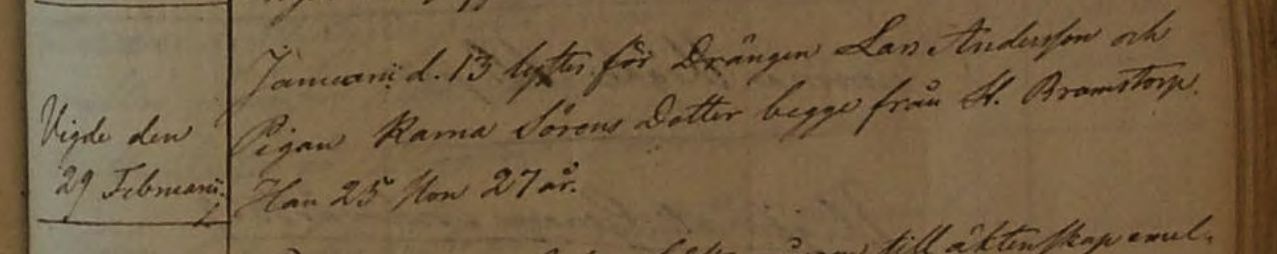 Januarii d. 13 lystes för Drängen Lars Andersson och
Pigan Karna Sörens Dotter begge från St. Bramstorp.
Han 25 Hon 27 år.
Vigde den
29 Februarii.
till äktenskap emel-